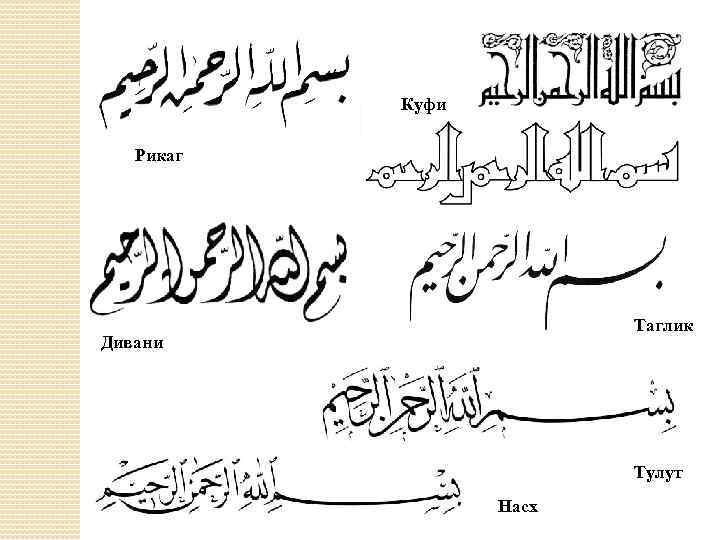 بسم الله الرحمن الرحيم
بسم الله الرحمن الرحيم
Куфи
بسم الله الرحمن الرحيم
Рикаг
بسم الله الرحمن الرحيم
بسم الله الرحمن الرحيم
Таглик
Дивани
بسم الله الرحمن الرحيم
Тулут
بسم الله الرحمن الرحيم
Насх